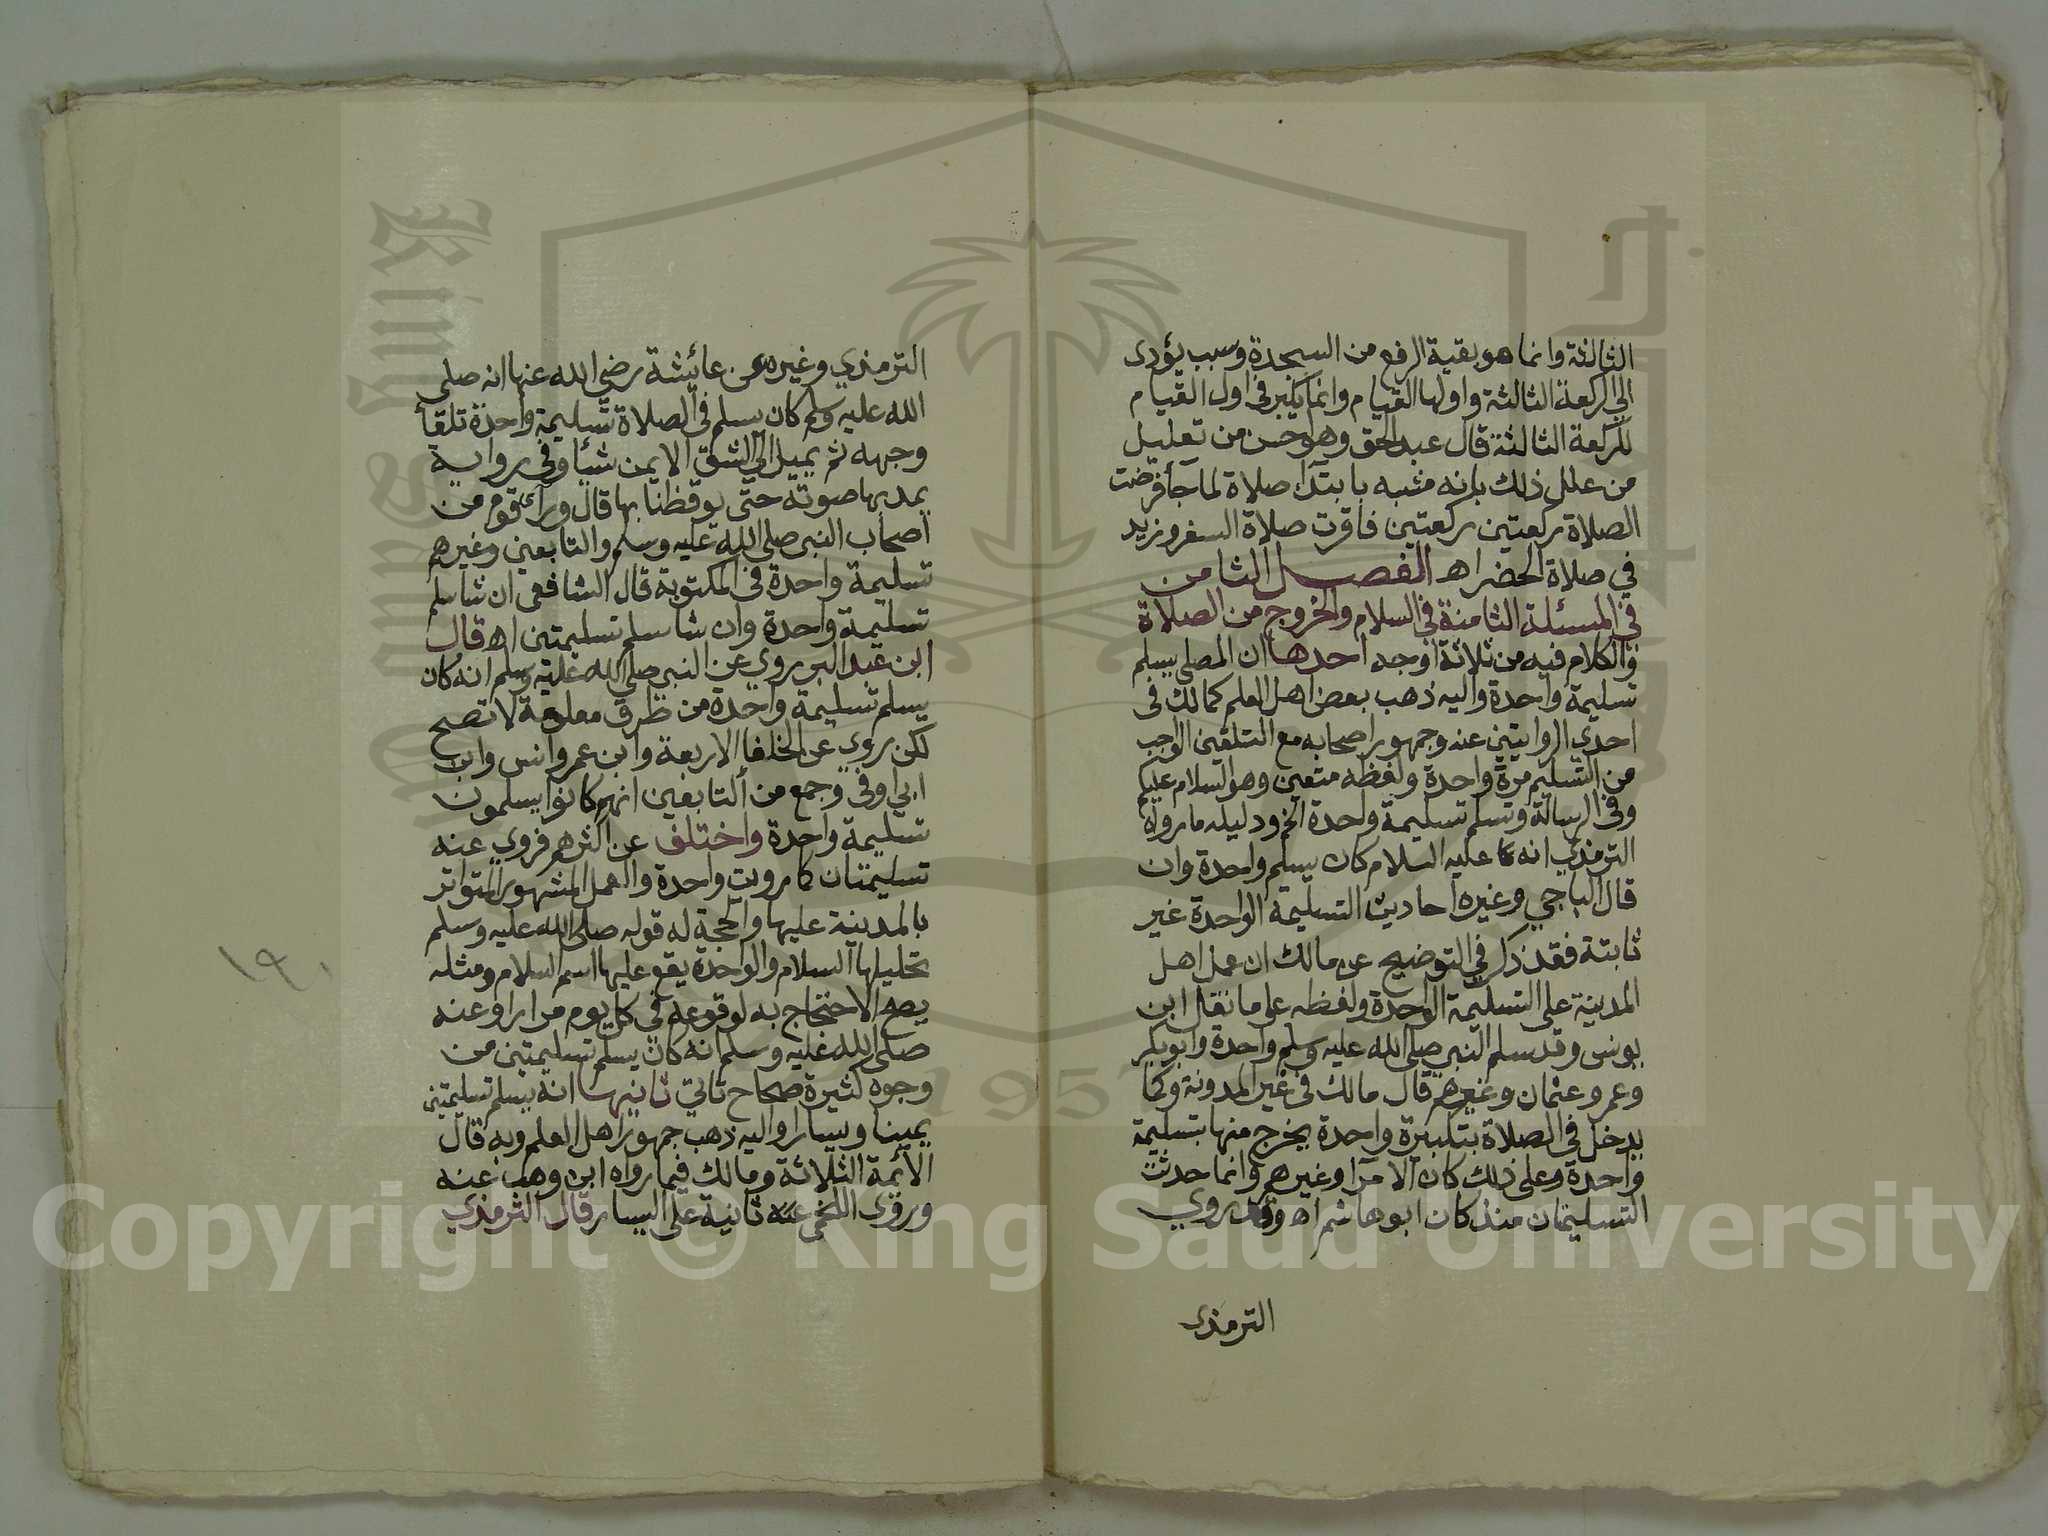 الثالثة وانما هو بقية الرفع من السجدة وسبب يؤدى
الي الركعة الثالثة واولها القيام وانما يكبر في اول القيام
للركعة الثالثة قال عبد الحق وهو احسن من تعليل
من علل ذلك بانه مشبه بابتداء صلاة لما جاء فرضت
الصلاة ركعتين ركعتين فاقرت صلاة السفر وزيد
في صلاة الحضر اهـ الفصل الثامن
في المسئلة الثامنة في السلام والخروج من الصلاة
والكلام فيه من ثلاثة اوجه احدها ان المصلي يسلم
تسليمة واحدة واليه ذهب بعض اهل العلم كمالك في
احدى الروايتين عنه وجمهور اصحابه مع المتلقين الواجب
من التسليم مرة واحدة ولفظه متعين وهو السلام عليكم
وفي الرسالة وتسلم تسليمة واحدة الخ ودليله ما رواه
الترمذي انه عليه السلام كان يسلم واحدة وان
قال الباجي وغيره احاديث التسليمة الواحدة غير
ثابتة فقد ذكر في التوضيح عن مالك ان عمل اهل
المدينة على التسليمة الواحدة ولفظه على ما نقل ابن
يونس وقد سلم النبي صلى الله عليه وسلم واحدة وابو بكر
وعمر وعثمان وغيرهم قال مالك في غير المدونة وكما
يدخل في الصلاة بتكبيرة واحدة يخرج منها بتسليمة
واحدة وعلى ذلك كان الامرا وغيرهم وانما حدثت
التسليمتان منذ كان ابو هاشم اهـ وقد روي
الترمذي
الترمذي وغيره عن عائشة رضي الله عنها انه صلى
الله عليه وسلم كان يسلم في الصلاة تسليمة واحدة تلقأ
وجهه ثم يميل الي الشق الايمن شيئا وفي رواية
يمد بها صوته حتى يوقظنا بها قال ورآى قوم من
اصحاب النبي صلى الله عليه وسلم والتابعين وغيرهم
تسليمة واحدة في المكتوبة قال الشافعي ان شا سلم
تسليمة واحدة وان شا سلم تسليمتين اهـ قال
ابن عبد البر روي عن النبي صلى الله عليه وسلم انه كان
يسلم تسليمة واحدة من طرق معلومة لا تصح
لكن روي عن الخلفا الاربعة وابن عمر وانس وابن
ابي اوفي وجمع من التابعين انهم كانوا يسلمون
تسليمة واحدة واختلف عن اكثرهم فروي عنه
تسليمتان كما رويت واحدة والعمل المشهور المتواتر
بالمدينة عليها والحجة له قوله صلى الله عليه وسلم
تحليلها السلام والواحدة يقع عليها اسم السلام ومثله
يصح الاحتجاج به لوقوعه في كل يوم مرارا وعنه
صلى الله عليه وسلم انه كان يسلم تسليمتين من
وجوه كثيرة صحاح تاتي ثانيها انه يسلم تسليمتين
يمينا ويسارا واليه ذهب جمهور اهل العلم وبه قال
الائمة الثلاثة ومالك فيما رواه ابن وهب عنه
وروى اللخمي عنه ثانية على اليسار قال الترمذي
Copyright © King Saud University
King Saud University
1957